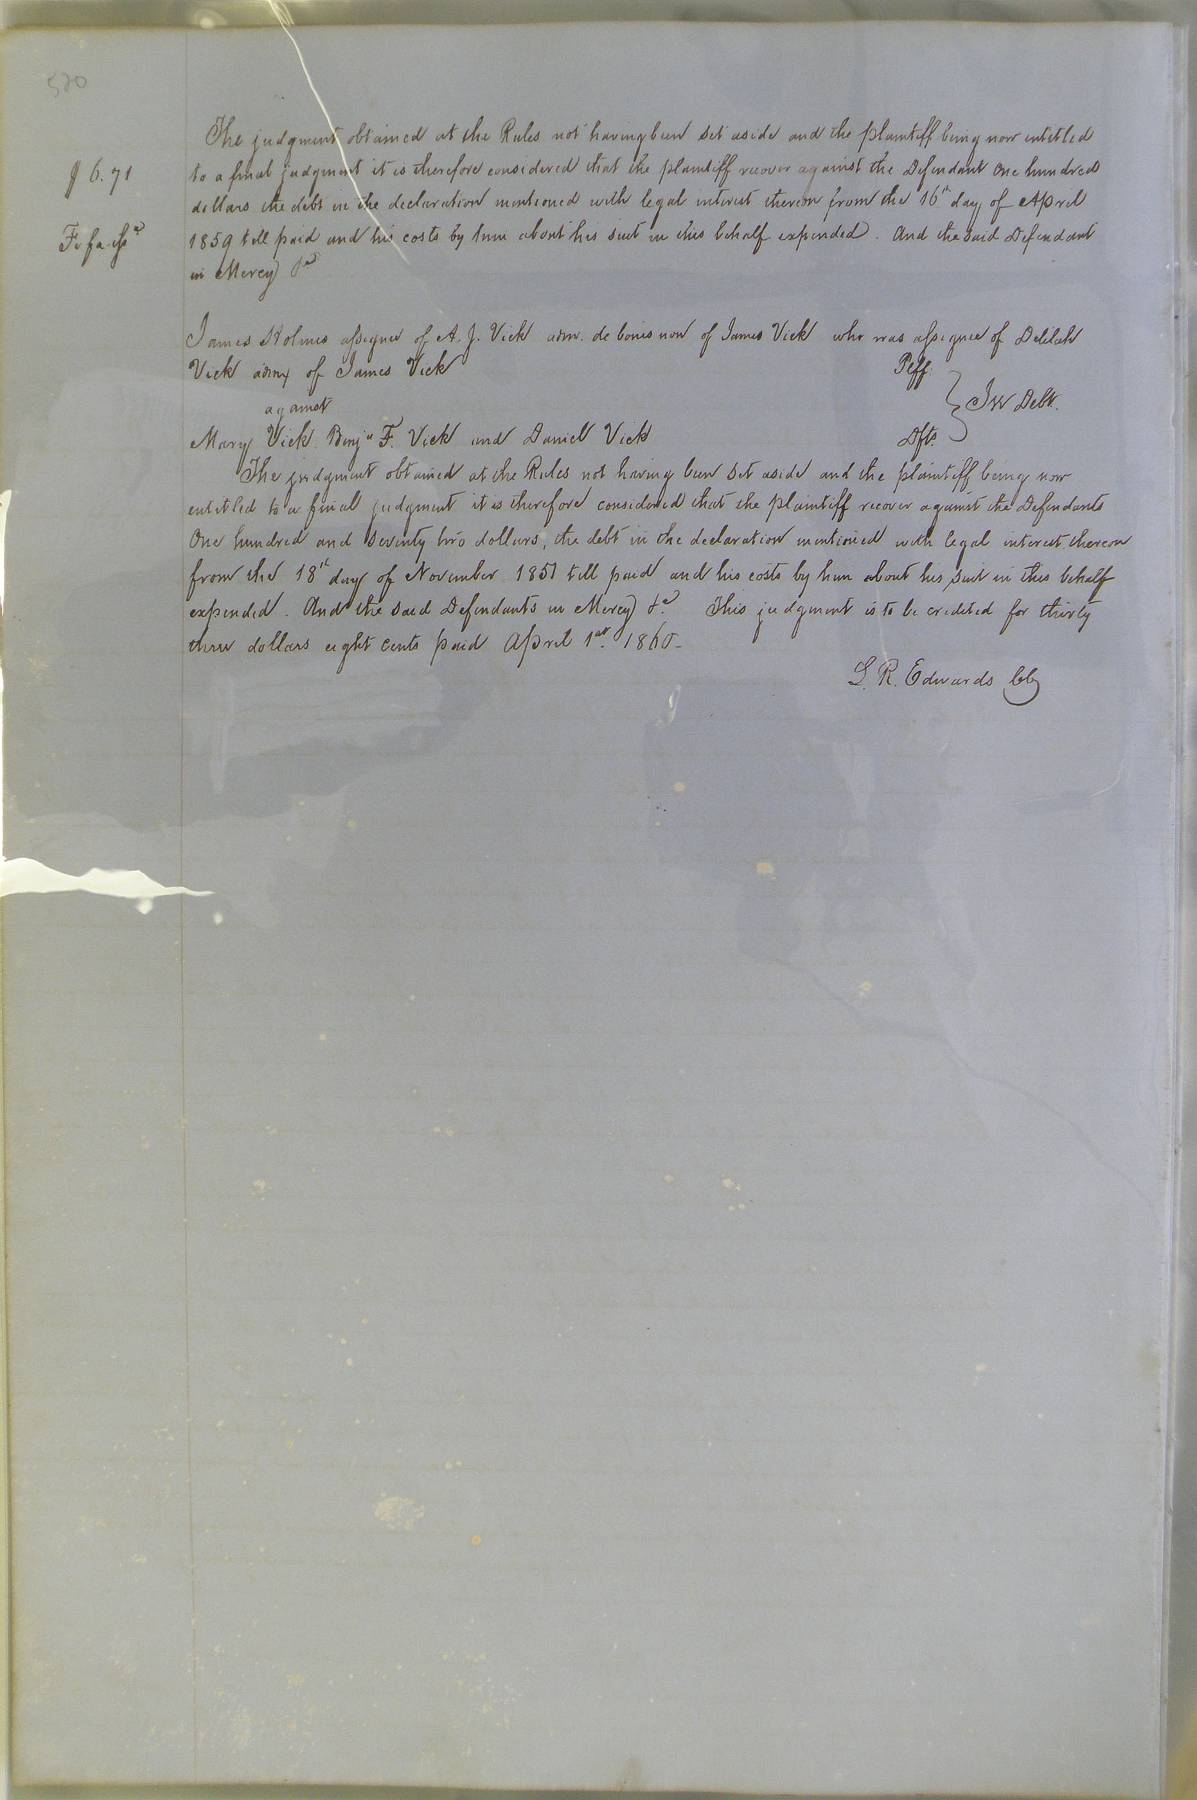 520
The judgment obtained at the Rules not having been set aside and the plaintiff being now entitled
$ 6.71
to a final judgment it is therefore considered that the plaintiff recover against the Defendant One hundred
dollars the debt in the declaration mentioned with legal interest thereon from the 16th day of April
Fi fa
1859 till paid and his costs by him about his suit in this behalf expended. And the said Defendant
in Mercy &c
James Holmes assignee of A. J. Vick adm. de bonis non of James Vick who was assignee of Delilah
Vick admx of James Vick Plff.
against In Debt.
Mary Vick. Benja F. Vick and Daniel Vick Dfts.
The judgment obtained at the Rules not having been set aside and the plaintiff being now
entitled to a final judgment it is therefore considered that the plaintiff recover against the Defendants
One hundred and seventy two dollars, the debt in the declaration mentioned with legal interest thereon
from the 18th day of November 1857 till paid and his costs by him about his suit in this behalf
expended. And the said Defendants in Mercy &c. This judgment is to be credited for thirty
three dollars eight cents paid April 1st. 1860-
L. R. Edwards Clk